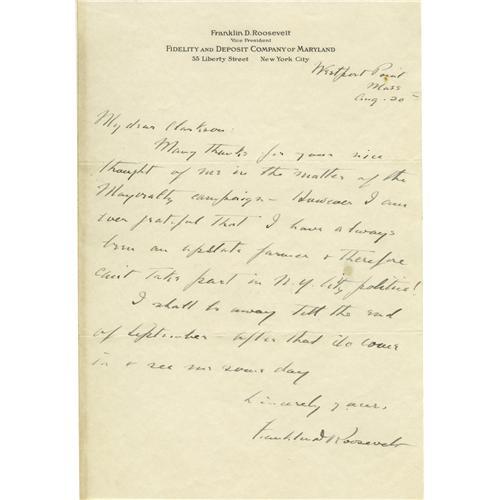 Franklin D. Roosevelt
Vice President
Fidelity and Deposit Company of Maryland
55 Liberty Street New York City
Westport Point
Mass
Aug. 20
My dear Clarkson:
Many thanks for your nice
thought of me in the matter of the
Mayoralty campaign - However I am
ever grateful that I have always
been an upstate farmer & therefore
can't take part in N.Y. City politics!
I shall be away till the end
of September - after that do come
in & see me some day
Sincerely yours,
Franklin D Roosevelt